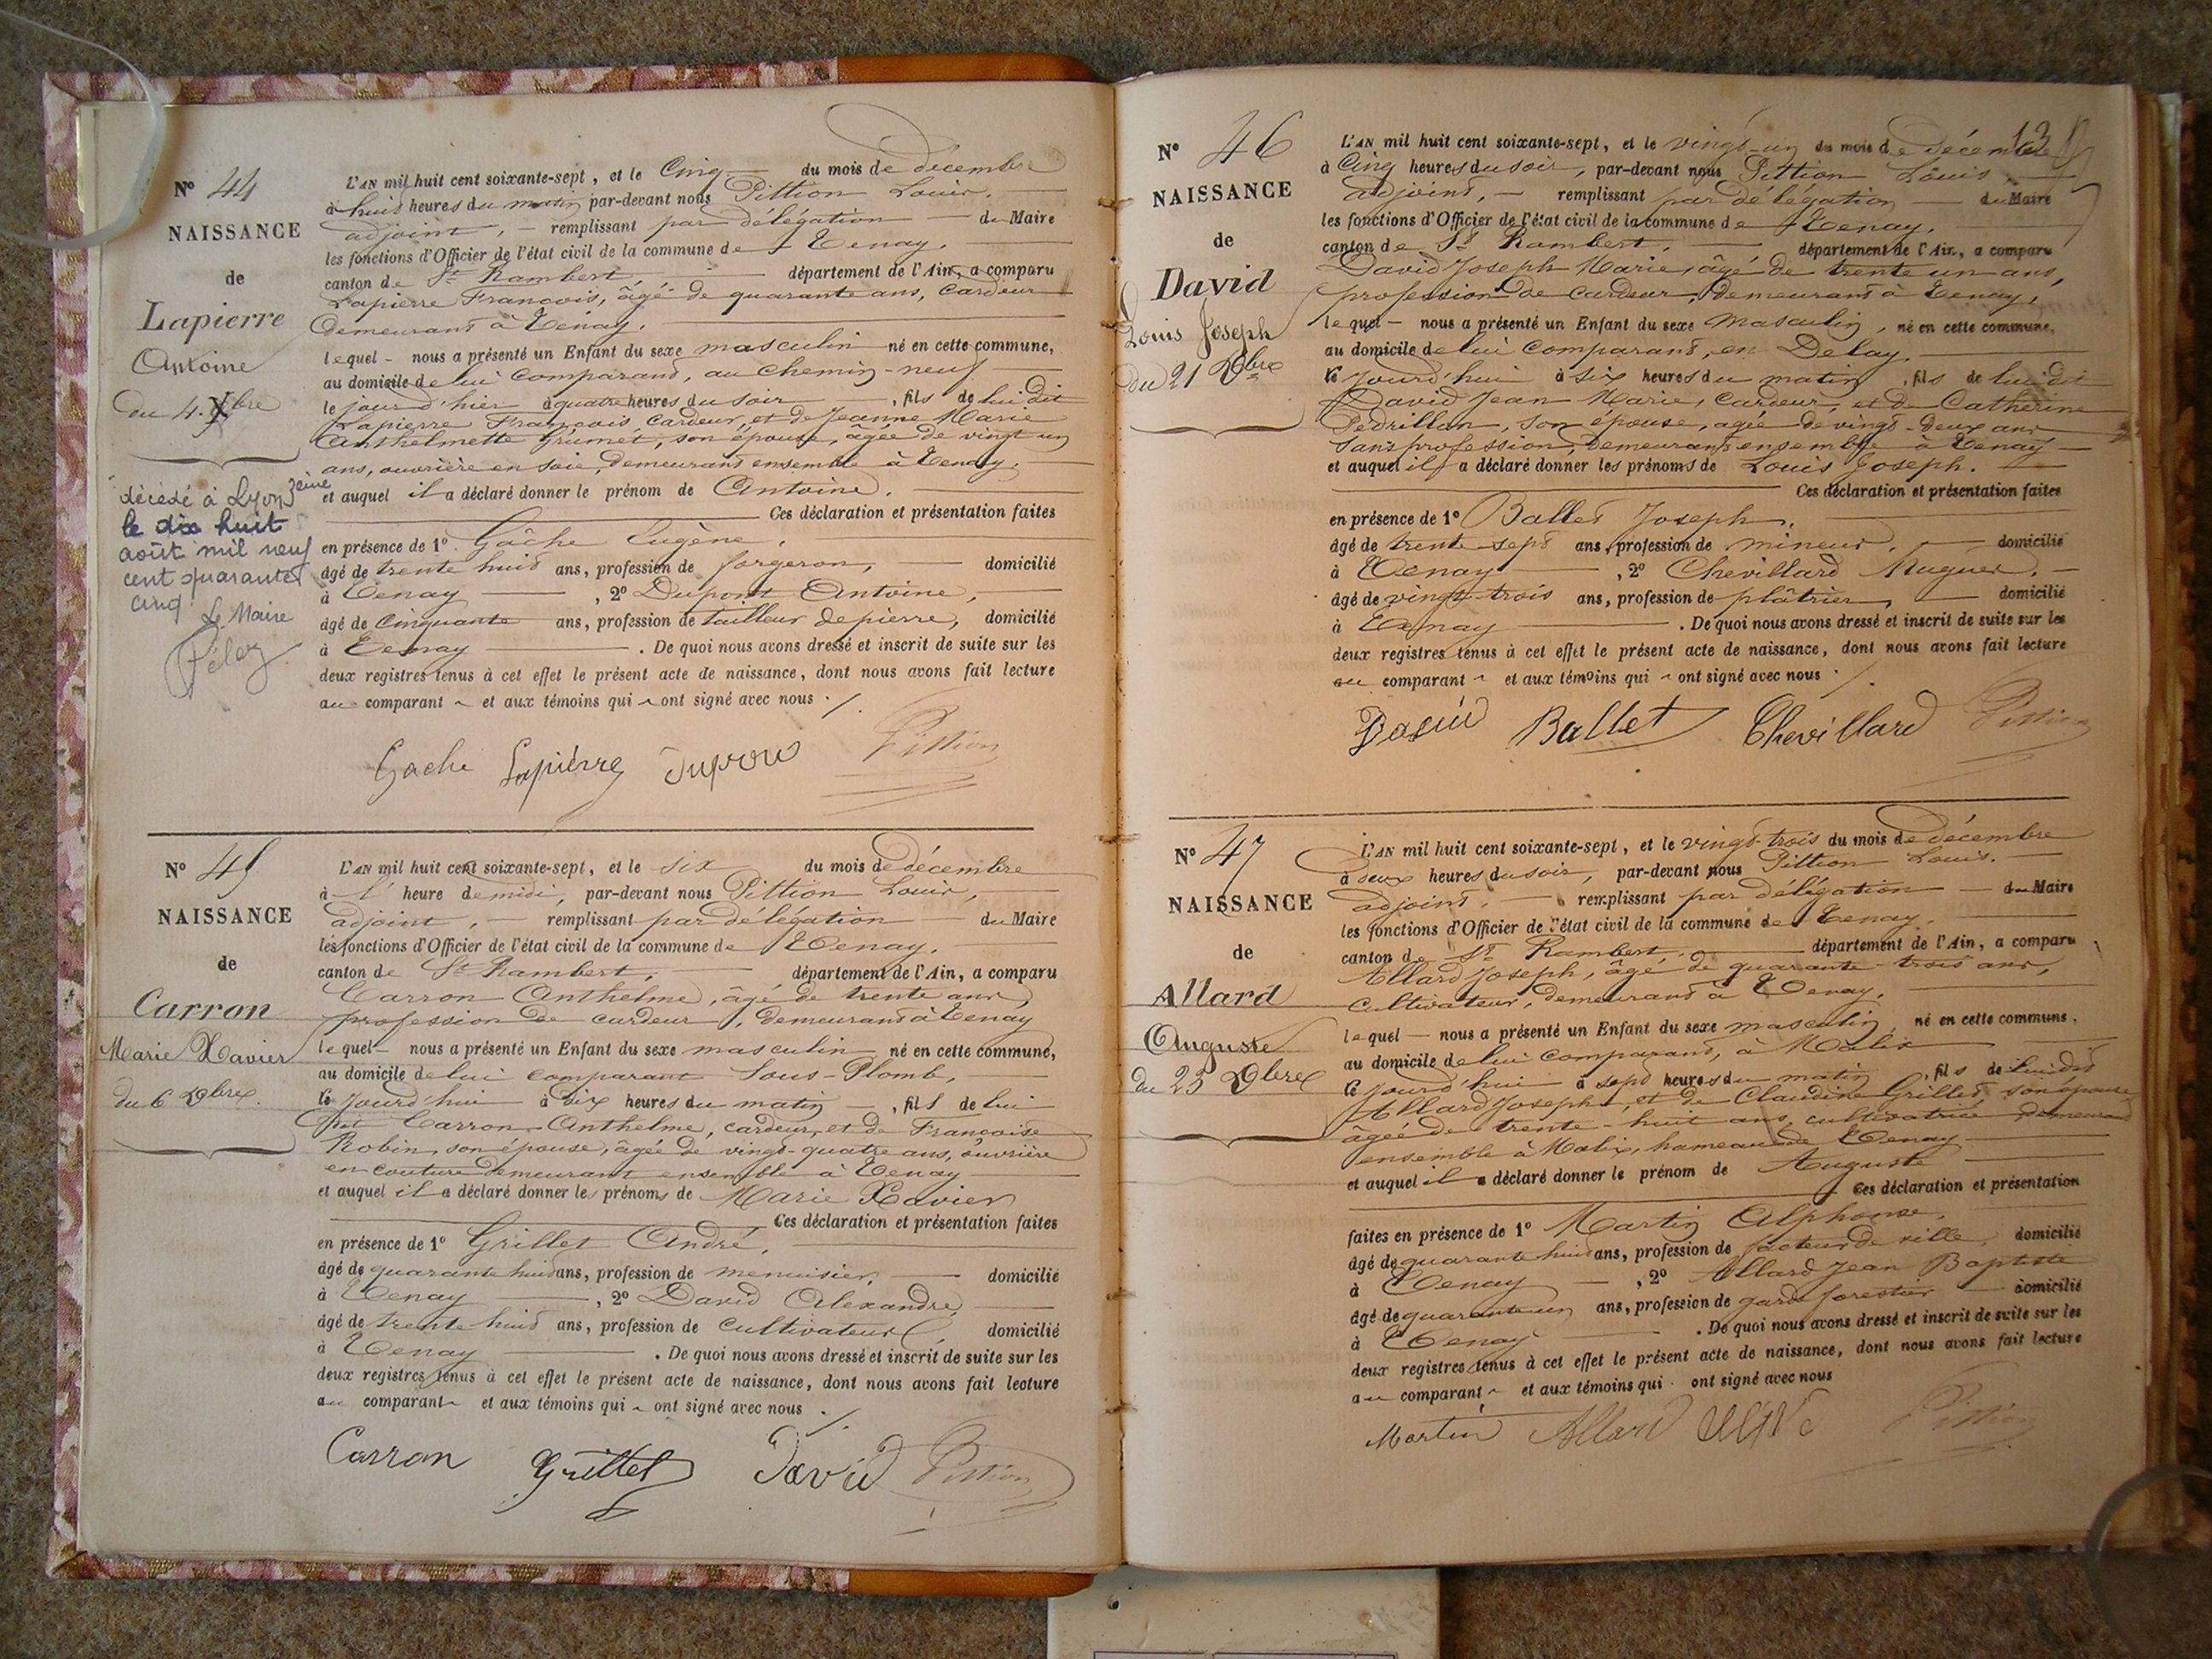 N° 44
NAISSANCE
de
Lapierre
Antoine
du 4 Xbre
décédé à Lyon 3ème
le dix huit
août mil neuf
cent quarante
cinq
Le Maire
L'AN mil huit cent soixante-sept, et le Cinq du mois de décembre
à huit heures du matin par-devant nous Pittion Louis,
adjoint, remplissant par délégation du Maire
les fonctions d'Officier de l'état civil de la commune de Tenay,
canton de St Rambert, département de l'Ain, a comparu
Lapierre François, âgé de quarante ans, cardeur
demeurant à Tenay,
lequel nous a présenté un Enfant du sexe masculin né en cette commune,
au domicile de lui comparant, au chemin-neuf
le jour d'hier à quatre heures du soir, fils de lui dit
Lapierre François, cardeur, et de Jeanne Marie
Anthelmette Grumet, son épouse, âgée de vingt un
ans, ouvrière en soie, demeurant ensemble à Tenay,
et auquel il a déclaré donner le prénom de Antoine.
Ces déclaration et présentation faites
en présence de 1° Gâche Eugène,
âgé de trente huit ans, profession de forgeron, domicilié
à Tenay, 2° Dupont Antoine,
âgé de Cinquante ans, profession de tailleur de pierre, domicilié
à Tenay. De quoi nous avons dressé et inscrit de suite sur les
deux registres tenus à cet effet le présent acte de naissance, dont nous avons fait lecture
au comparant et aux témoins qui ont signé avec nous.
Gache Lapierre Dupont Pittion
N° 45
NAISSANCE
de
Carron
Marie Xavier
du 6 Xbre
L'AN mil huit cent soixante-sept, et le six du mois de décembre
à l' heure de midi, par-devant nous Pittion Louis,
adjoint, remplissant par délégation du Maire
les fonctions d'Officier de l'état civil de la commune de Tenay,
canton de St Rambert, département de l'Ain, a comparu
Carron Anthelme, âgé de trente ans,
profession de cardeur, demeurant à Tenay
lequel nous a présenté un Enfant du sexe masculin né en cette commune,
au domicile de lui comparant Sous-Plomb,
le jourd'hui à six heures du matin, fils de lui
dit Carron Anthelme, cardeur, et de Françoise
Robin, son épouse, âgée de vingt-quatre ans, ouvrière
en couture demeurant ensemble à Tenay
et auquel il a déclaré donner les prénoms de Marie Xavier
Ces déclaration et présentation faites
en présence de 1° Grillet André,
âgé de quarante huit ans, profession de menuisier, domicilié
à Tenay, 2° David Alexandre,
âgé de trente huit ans, profession de Cultivateur, domicilié
à Tenay. De quoi nous avons dressé et inscrit de suite sur les
deux registres tenus à cet effet le présent acte de naissance, dont nous avons fait lecture
au comparant et aux témoins qui ont signé avec nous.
Carron Grillet David Pittion
13
N° 46
NAISSANCE
de
David
Louis Joseph
du 21 Xbre
L'AN mil huit cent soixante-sept, et le vingt-un du mois de décembre
à Cinq heures du soir, par-devant nous Pittion Louis,
adjoint, remplissant par délégation du Maire
les fonctions d'Officier de l'état civil de la commune de Tenay,
canton de St Rambert, département de l'Ain, a comparu
David Joseph Marie, âgé de trente un ans,
profession de cardeur, demeurant à Tenay,
lequel nous a présenté un Enfant du sexe masculin, né en cette commune,
au domicile de lui comparant, en Delay,
le jourd'hui à six heures du matin, fils de lui dit
David Jean Marie, cardeur, et de Catherine
Pédrillon, son épouse, agée de vingt-deux ans
sans profession, demeurant ensemble à Tenay
et auquel il a déclaré donner les prénoms de Louis Joseph.
Ces déclaration et présentation faites
en présence de 1° Ballet Joseph,
âgé de trente-sept ans, profession de mineur, domicilié
à Tenay, 2° Chevillard Huguet,
âgé de vingt-trois ans, profession de plâtrier, domicilié
à Tenay. De quoi nous avons dressé et inscrit de suite sur les
deux registres tenus à cet effet le présent acte de naissance, dont nous avons fait lecture
au comparant et aux témoins qui ont signé avec nous.
David Ballet Chevillard Pittion
N° 47
NAISSANCE
de
Allard
Auguste
du 23 Xbre
L'AN mil huit cent soixante-sept, et le vingt-trois du mois de décembre
à deux heures du soir, par-devant nous Pittion Louis,
adjoint, remplissant par délégation du Maire
les fonctions d'Officier de l'état civil de la commune de Tenay,
canton de St Rambert, département de l'Ain, a comparu
Allard Joseph, âgé de quarante-trois ans,
cultivateur, demeurant à Tenay,
lequel nous a présenté un Enfant du sexe masculin, né en cette commune,
au domicile de lui comparant, à Malix
le jourd'hui à sept heures du matin, fils de lui dit
Allard Joseph, et de Claudine Grillet son épouse
âgée de trente-huit ans, cultivatrice demeurant
ensemble à Malix, hameau de Tenay
et auquel il a déclaré donner le prénom de Auguste
Ces déclaration et présentation
faites en présence de 1° Martin Alphonse,
âgé de quarante huit ans, profession de facteur de ville, domicilié
à Tenay, 2° Allard Jean Baptiste
âgé de quarante un ans, profession de garde forestier domicilié
à Tenay. De quoi nous avons dressé et inscrit de suite sur les
deux registres tenus à cet effet le présent acte de naissance, dont nous avons fait lecture
au comparant et aux témoins qui ont signé avec nous
Martin Allard Pittion